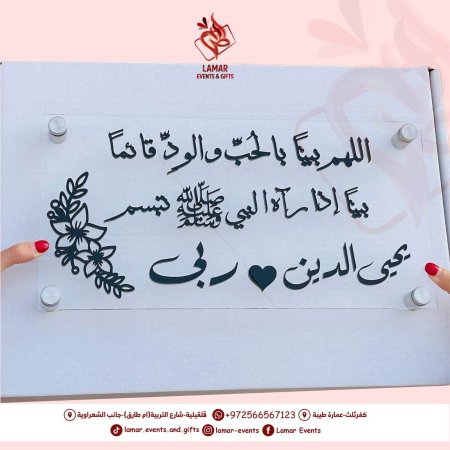 LAMAR
EVENTS & GIFTS
اللهم بيتًا بالحُبّ والودّ قائمًا
بيتًا إذا رآه النبي ﷺ تبسم
يحيى الدين ♥ ربى
كفرثلث-عمارة طيبة
+972566567123
قلقيلية-شارع التربية(ام طارق)-جانب الشعراوية
lamar.events.and.gifts
lamar-events
Lamar Events